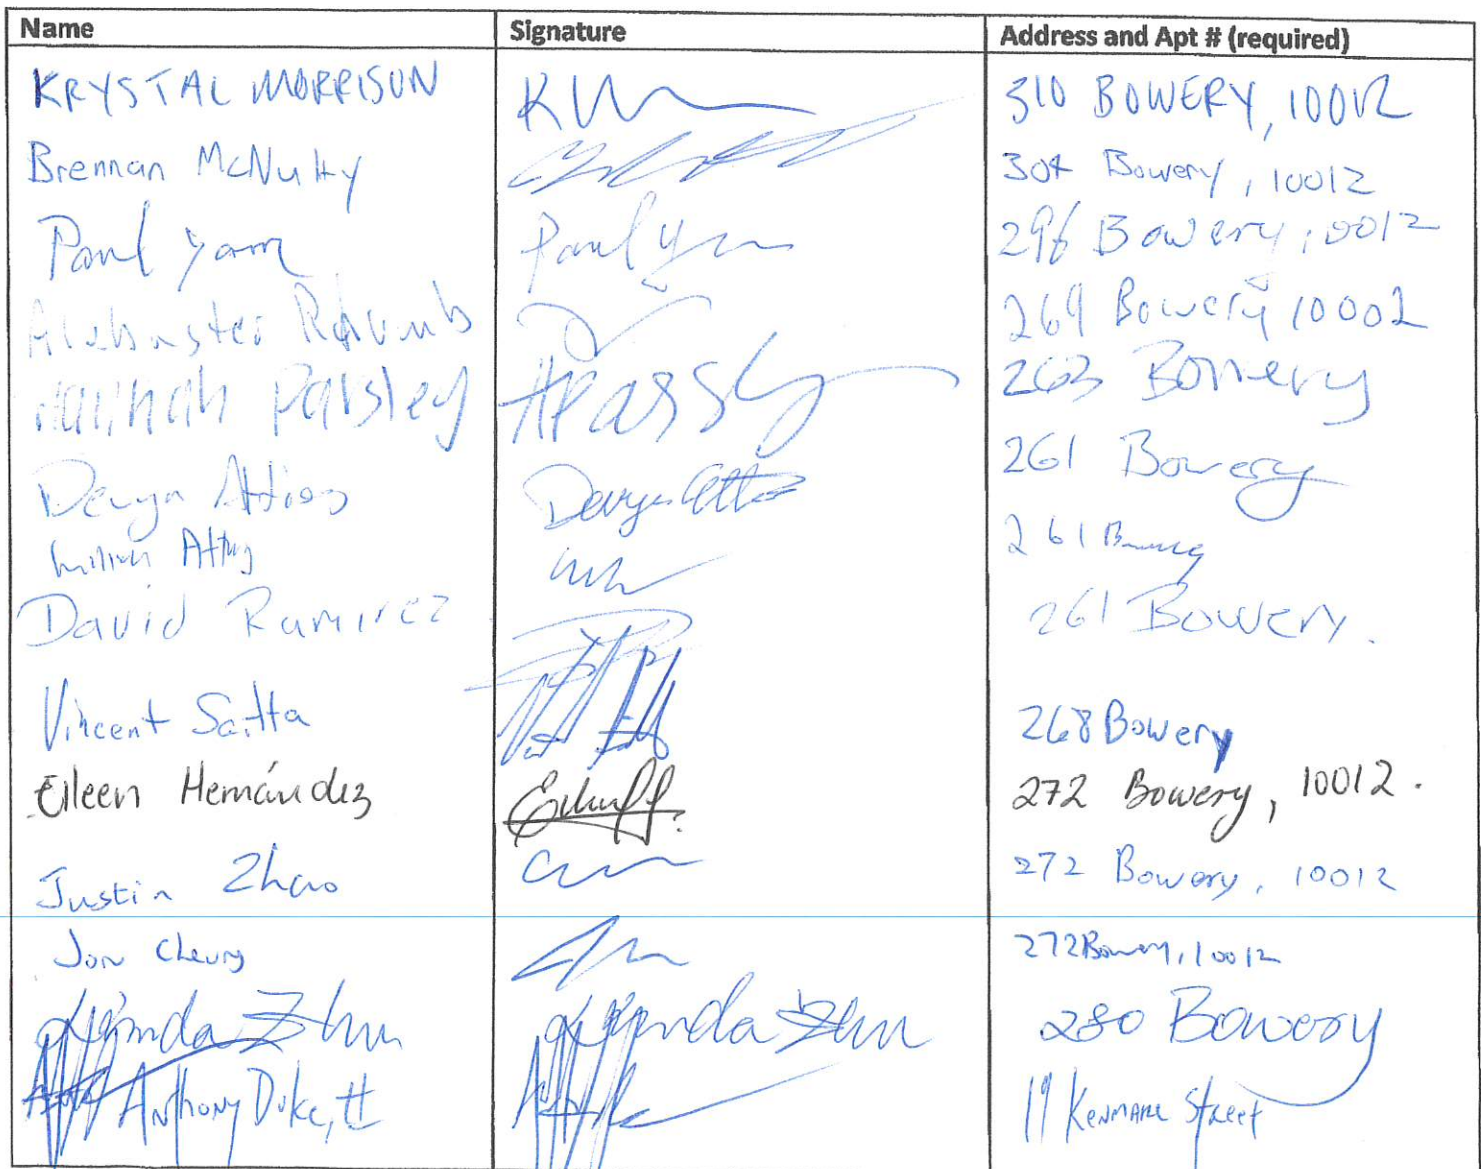 Name Signature Address and Apt # (required)
KRYSTAL MORRISON KM 310 BOWERY, 10012
Brennan McNulty 304 Bowery, 10012
Paul Yam Paul Yam 296 Bowery, 10012
Alabaster 269 Bowery 10002
Hannah Parsley HParsley 263 Bowery
Devyn Devyn 261 Bowery
261 Bowery
David Ramirez 261 Bowery.
Vincent Saitta 268 Bowery
Eileen Hernández 272 Bowery, 10012.
Justin Zhao 272 Bowery, 10012
Jon Cheung 272 Bowery, 10012
Linda Zhu Linda Zhu 280 Bowery
Anthony Duke, II 19 KENMARE Street